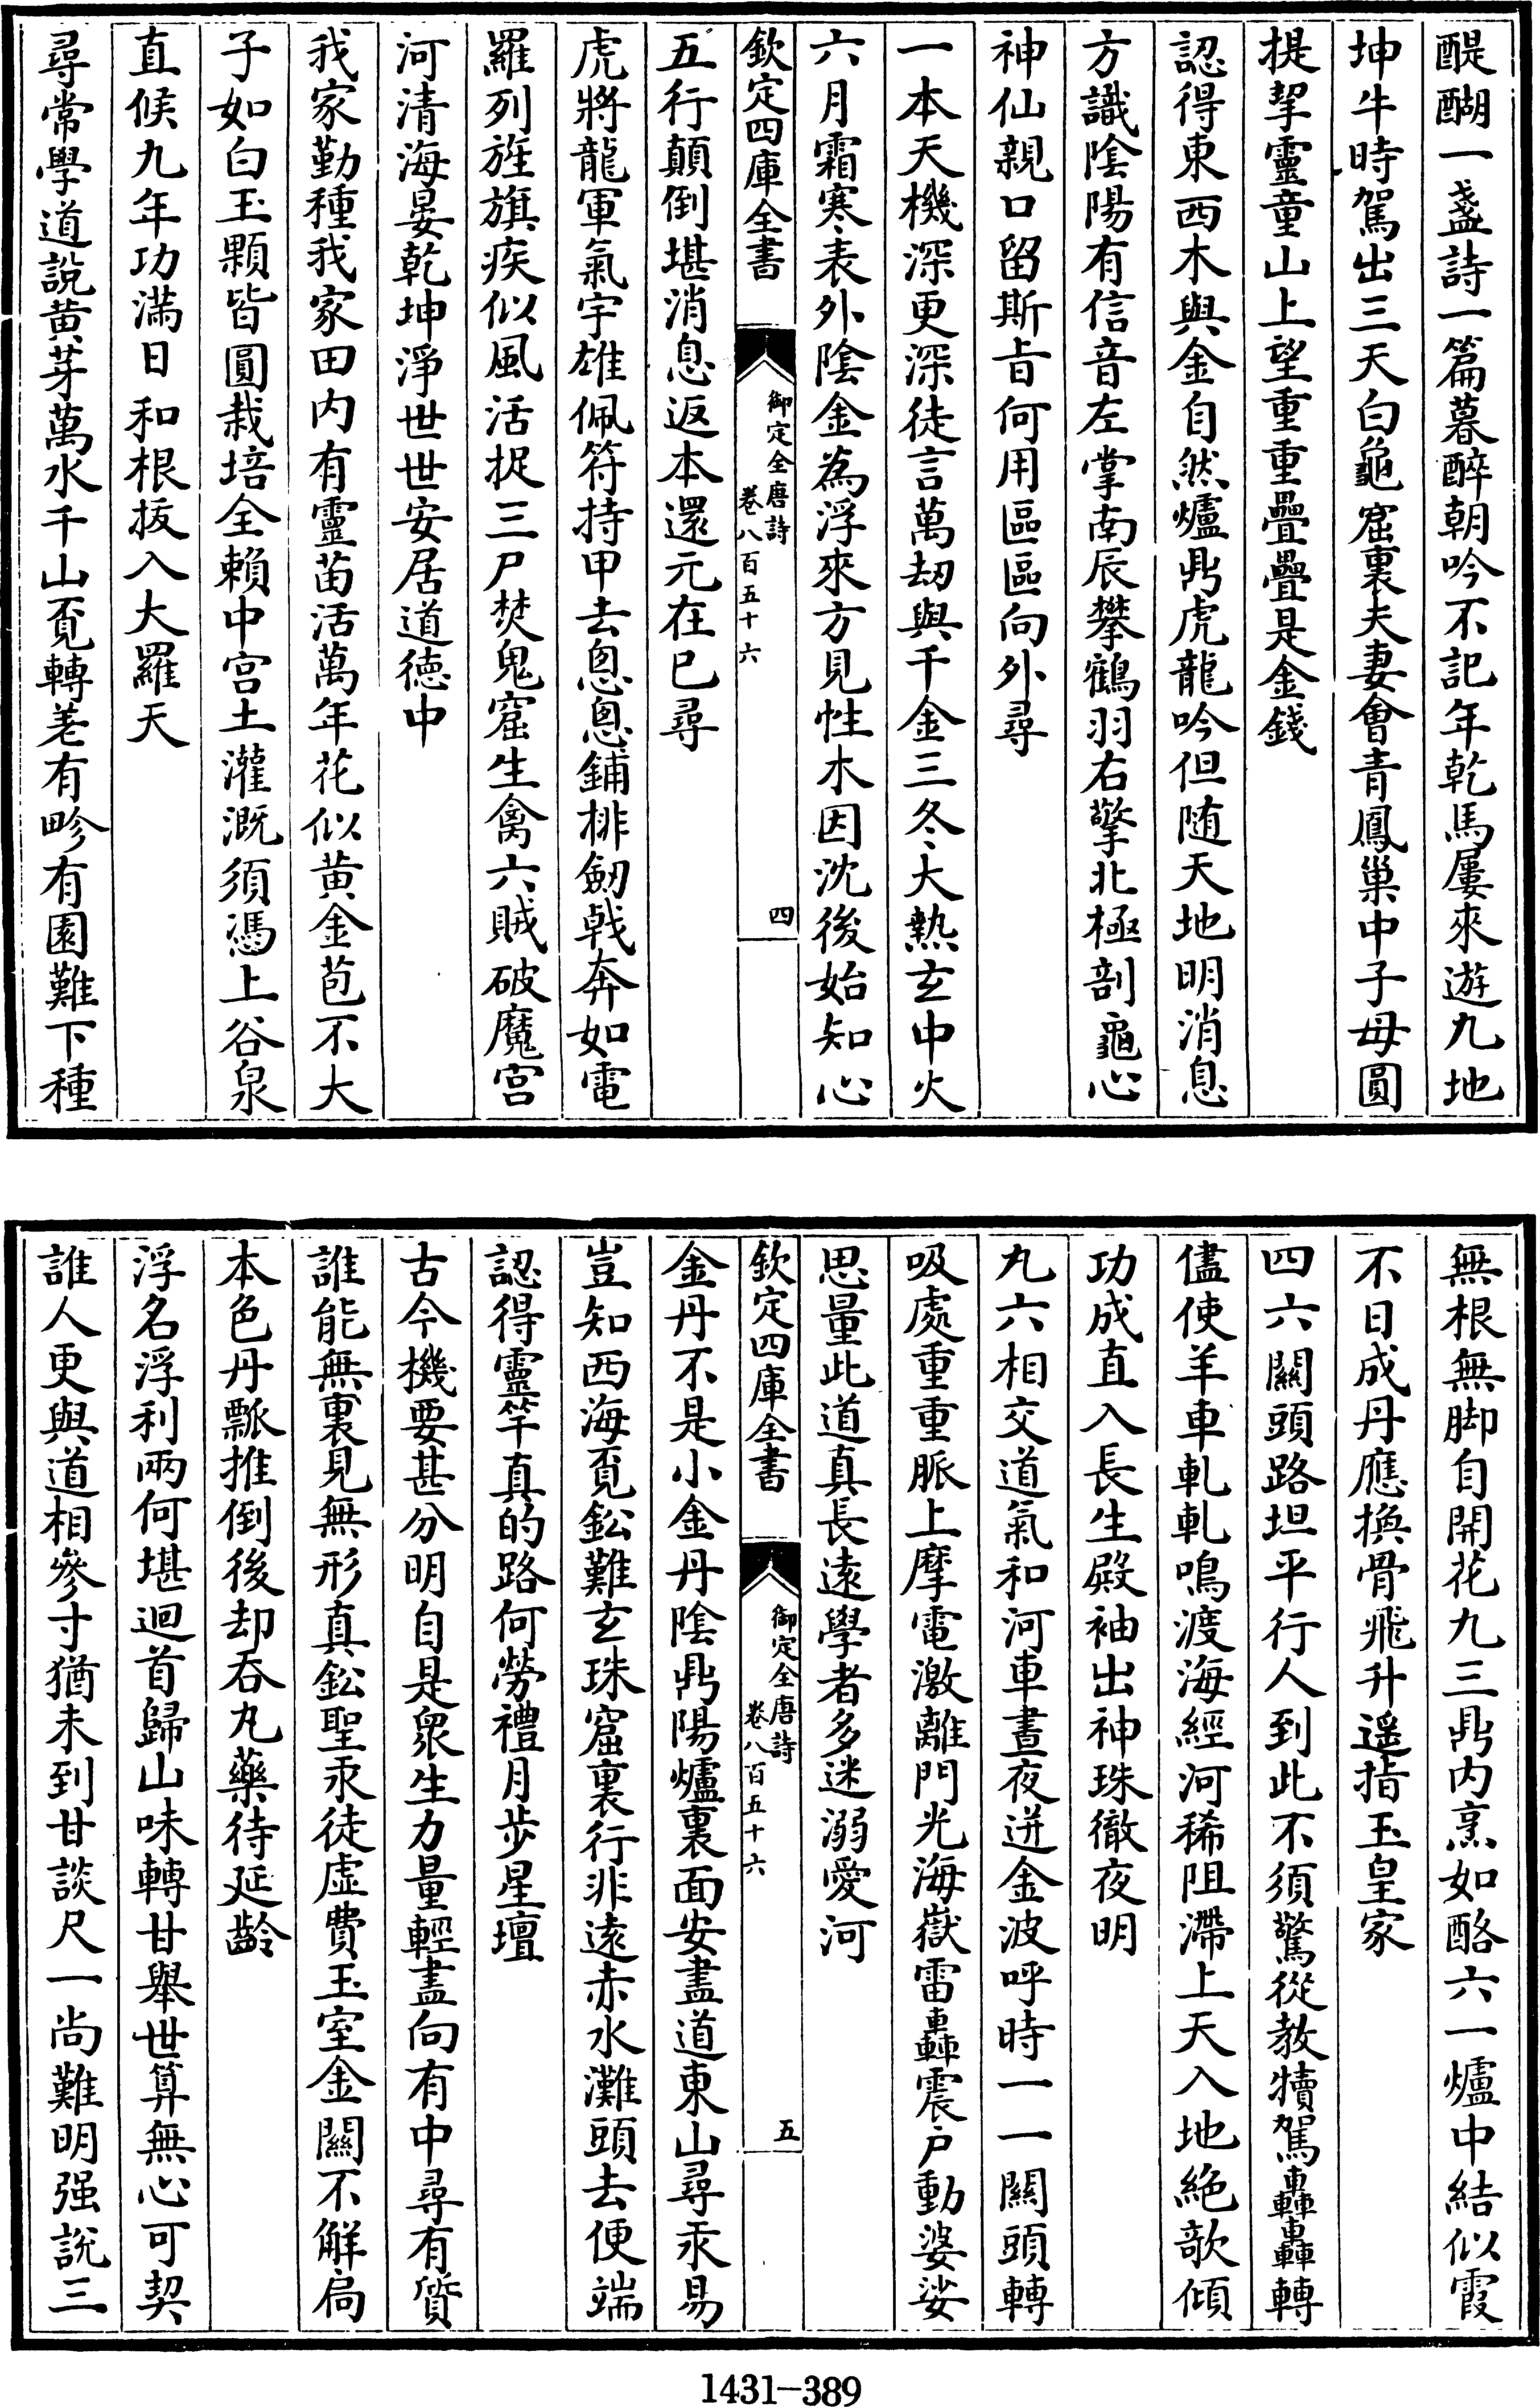 醍醐一盞詩一篇暮醉朝吟不記年乾馬屢來遊九地
坤牛時駕出三天白龜窟裏夫妻會青鳳巢中子母圓
提挈靈童山上望重重疊疊是金錢
認得東西木與金自然爐鼎虎龍吟但随天地明消息
方識陰陽有信音左掌南辰攀鶴羽右擎北極剖龜心
神仙親口留斯旨何用區區向外尋
一本天機深更深徒言萬劫與千金三冬大熱玄中火
六月霜寒表外陰金為浮來方見性木因沈後始知心
欽定四庫全書
御定全唐詩
卷八百五十六
四
五行顛倒堪消息返本還元在已尋
虎將龍軍氣宇雄佩符持甲去悤悤鋪排劒戟奔如電
羅列旌旗疾似風活捉三尸焚鬼窟生禽六賊破魔宫
河清海晏乾坤淨世世安居道徳中
我家勤種我家田内有靈苗活萬年花似黄金苞不大
子如白玉顆皆圓栽培全賴中宫土灌溉須憑上谷泉
直候九年功滿日和根拔入大羅天
尋常學道說黄芽萬水千山覓轉差有畛有園難下種
無根無脚自開花九三鼎内烹如酪六一爐中結似霞
不日成丹應換骨飛升遥指玉皇家
四六關頭路坦平行人到此不須驚從教犢駕轟轟轉
儘使羊車軋軋鳴渡海經河稀阻滯上天入地絶欹傾
功成直入長生殿袖出神珠徹夜明
九六相交道氣和河車晝夜迸金波呼時一一關頭轉
吸處重重脈上摩電激離門光海嶽雷轟震户動婆娑
思量此道真長遠學者多迷溺愛河
欽定四庫全書
御定全唐詩
卷八百五十六
五
金丹不是小金丹陰鼎陽爐裏面安盡道東山尋汞易
豈知西海覓鉛難玄珠窟裏行非遠赤水灘頭去便端
認得靈竿真的路何勞禮月步星壇
古今機要甚分明自是衆生力量輕盡向有中尋有質
誰能無裏見無形真鉛聖汞徒虚費玉室金關不解扃
本色丹瓢推倒後却吞丸藥待延齡
浮名浮利兩何堪迴首歸山味轉甘舉世算無心可契
誰人更與道相參寸猶未到甘談尺一尚難明强說三
1431-389